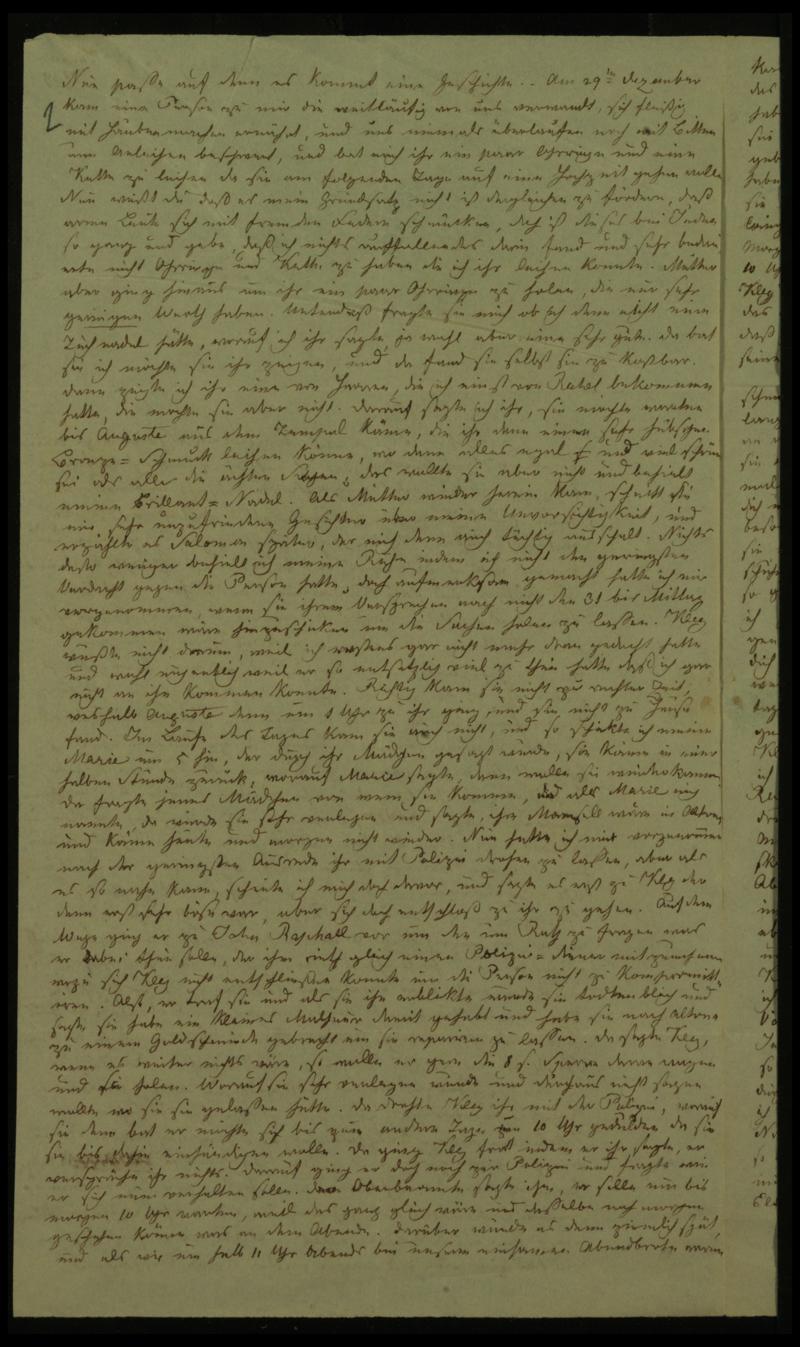 Nun passe auf denn es kommt eine Geschichte. - Am 29ten Dezember
kam eine Person zu mir die weitläufig von uns verwandt, sich fleißig
2
mit Haubenmachen ernährt, und uns niemals überlaufen noch mit Bitten
um Anleihen beschwert, und bat mich ihr ein paar Ohrringe und eine
Kette zu leihen da sie am folgenden Tage auf eine Hochzeit gehen wolle
Nun weißt du daß es mein Grundsatz nicht ist dergleichen zu fördern, daß
arme Leute sich mit fremden Federn schmücken, doch ist dieses bei Juden
so gang und gebe, daß ich nichts auffallendes darin fand und sehr bedau
erte nicht Ohrringe und Kette zu haben die ich ihr leihen konnte. Mutter
aber ging hinaus um ihr ein paar Ohrringe zu holen, die nur sehr
geringen Werth haben. Unterdeß fragte sie mich ob ich denn nicht eine
Tuchnadel hätte, worauf ich ihr sagte ja wohl aber eine sehr gute. Da bat
sie ich möchte sie ihr zeigen, und da fand sie selbst sie zu kostbar.
dann zeigte ich ihr eine von Haaren, die ich einst von Rahel bekommen
hatte, die mochte sie aber nicht. Darauf sagte ich ihr, sie möchte warten
bis Auguste aus dem Tempel käme, die ihr dann einen sehr hübschen
Bronze=Schmuck leihen könne, wo dann alles egal und viel schöner
sei als alle die ächten Sachen, das wollte sie aber nicht und behielt
meine Brillant=Nadel. Als Mutter wieder herein kam, schnitt sie
mir sehr unzufriedene Gesichter über meine Unvorsichtigkeit, und
erzählte es Salomon später, der mich denn auch tüchtig ausschalt. Nichts
desto weniger behielt ich meine Ruhe indem ich nicht den geringsten
Verdacht gegen die Person hatte, doch aufmerksam gemacht hatte ich mir
vorgenommen, wenn sie ihrem Versprechen nach nicht den 31 bis Mittag
gekommen wäre hinzuschicken um die Sachen holen zu lassen. Kley
wußte nicht darum, weil ich erstens gar nicht mehr dran gedacht hatte
und wohl nicht weil er so entsetzlich viel zu thun hatte daß ich gar
nicht an ihn kommen konnte. Richtig kam sie nicht zu rechter Zeit,
weshalb Auguste denn um 1 Uhr zu ihr ging, und sie nicht zu Hause
fand. Im Laufe des Tages kam sie auch nicht, und so schickte ich meine
Marie um 5 hin, der durch ihr Mädchen gesagt wurde, sie käme in einer
halben Stunde zurück, worauf Marie sagte, dann wolle sie wiederkommen
da fragte jenes Mädchen von wem sie komme, und als Marie mich
nannte, da wurde sie sehr verlegen und sagte, ihre Mamsell wäre in Altona
und käme heute und morgen nicht wieder. Nun hatte ich mir vorgenommen
nach der geringsten Ausrede ihr mit Polizei drohen zu lassen, aber als
es so nahe kam, scheute ich mich doch davor, und sagte es erst zu Kley der
denn erst sehr böse war, aber sich doch entschloß zu ihr zu gehen. Auf dem
Wege ging er zu John Raphael vor um den um Rath zu fragen was
er dabei thun solle, der ihm rieth gleich einen Polizei=diener mitzunehmen
wozu sich Kley nicht entschließen konnte um die Person nicht zu kompromitt
iren. Also, er traf sie und als sie ihn erblickte wurde sie todtenbleich und
sagte sie habe ein kleines Malheur damit gehabt und habe sie nach Altona
zu einem Goldschmiede gebracht um sie repariren zu lassen. Da sagte Kley,
wenn es weiter nichts wäre, so wolle er gern die 8 s. Sperre daran wagen
und sie holen. Worauf sie sehr verlegen wurde und durchaus nicht sagen
wollte wo sie sie gelassen hätte. Da drohte Kley ihr mit der Polizei, worauf
sie denn bat er möchte sich bis zum andern Tage um 10 Uhr gedulden da sie
sie bis dahin einhändigen wolle. Da ging Kley fort indem er ihr sagte, er
verspräche ihr nichts. Darauf ging er doch noch zur Polizei und fragte wie
er sich nun verhalten solle. Der Oberbeamte sagte ihm, er solle nur bis
morgen 10 Uhr warten, weil das ganz gleich wäre und dasselbe noch morgen
geschehen könne was an dem Abende. Darüber wurde es denn ziemlich spät,
und als wir um halb 11 Uhr Abends bei unserm einsamen Abendbrote waren